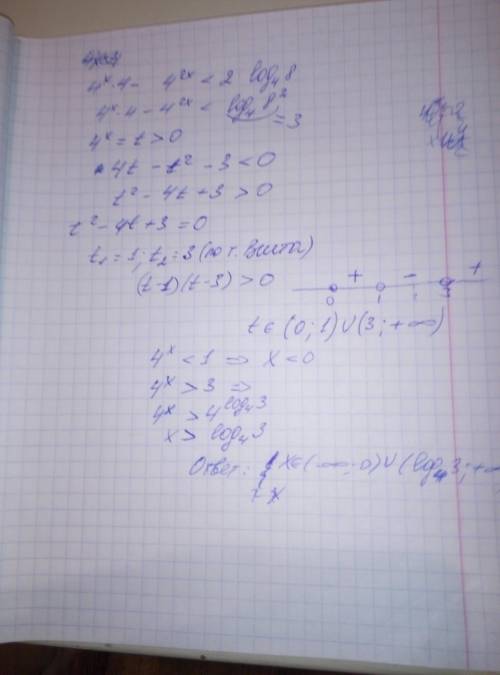 4ˣ·4 - 4²ˣ < 2 log₄8
4ˣ·4 - 4²ˣ < log₄8² = 3
4ˣ = t > 0
4t - t² - 3 < 0
t² - 4t + 3 > 0
t² - 4t + 3 = 0
t₁ = 1; t₂ = 3 (по т. Виета)
(t-1)(t-3) > 0
+ - +
0 1 3
t ∈ (0; 1) ∪ (3; +∞)
4ˣ < 1 ⇒ x < 0
4ˣ > 3 ⇒
4ˣ > 4^log₄3
x > log₄3
Ответ: x ∈ (-∞; 0) ∪ (log₄3; +∞